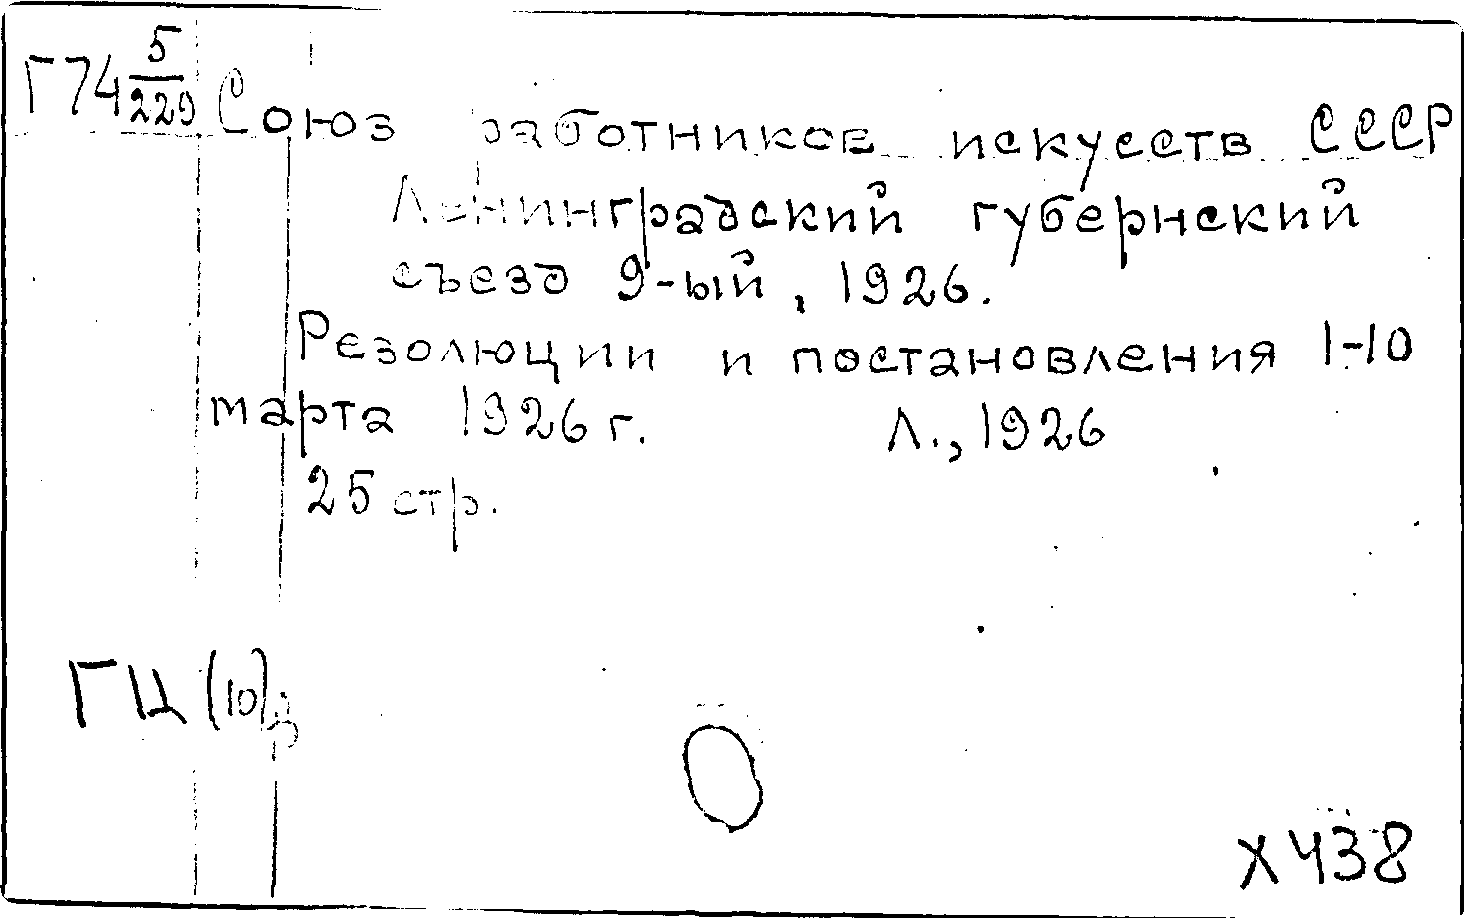 Г74 5/229 Союз работников искусств СССР
Ленинградский губернский
съезд 9-ый, 1926.
Резолюции и постановления 1-10
марта 1926 г. Л., 1926
25 стр.
ГЦ (10)
Х438